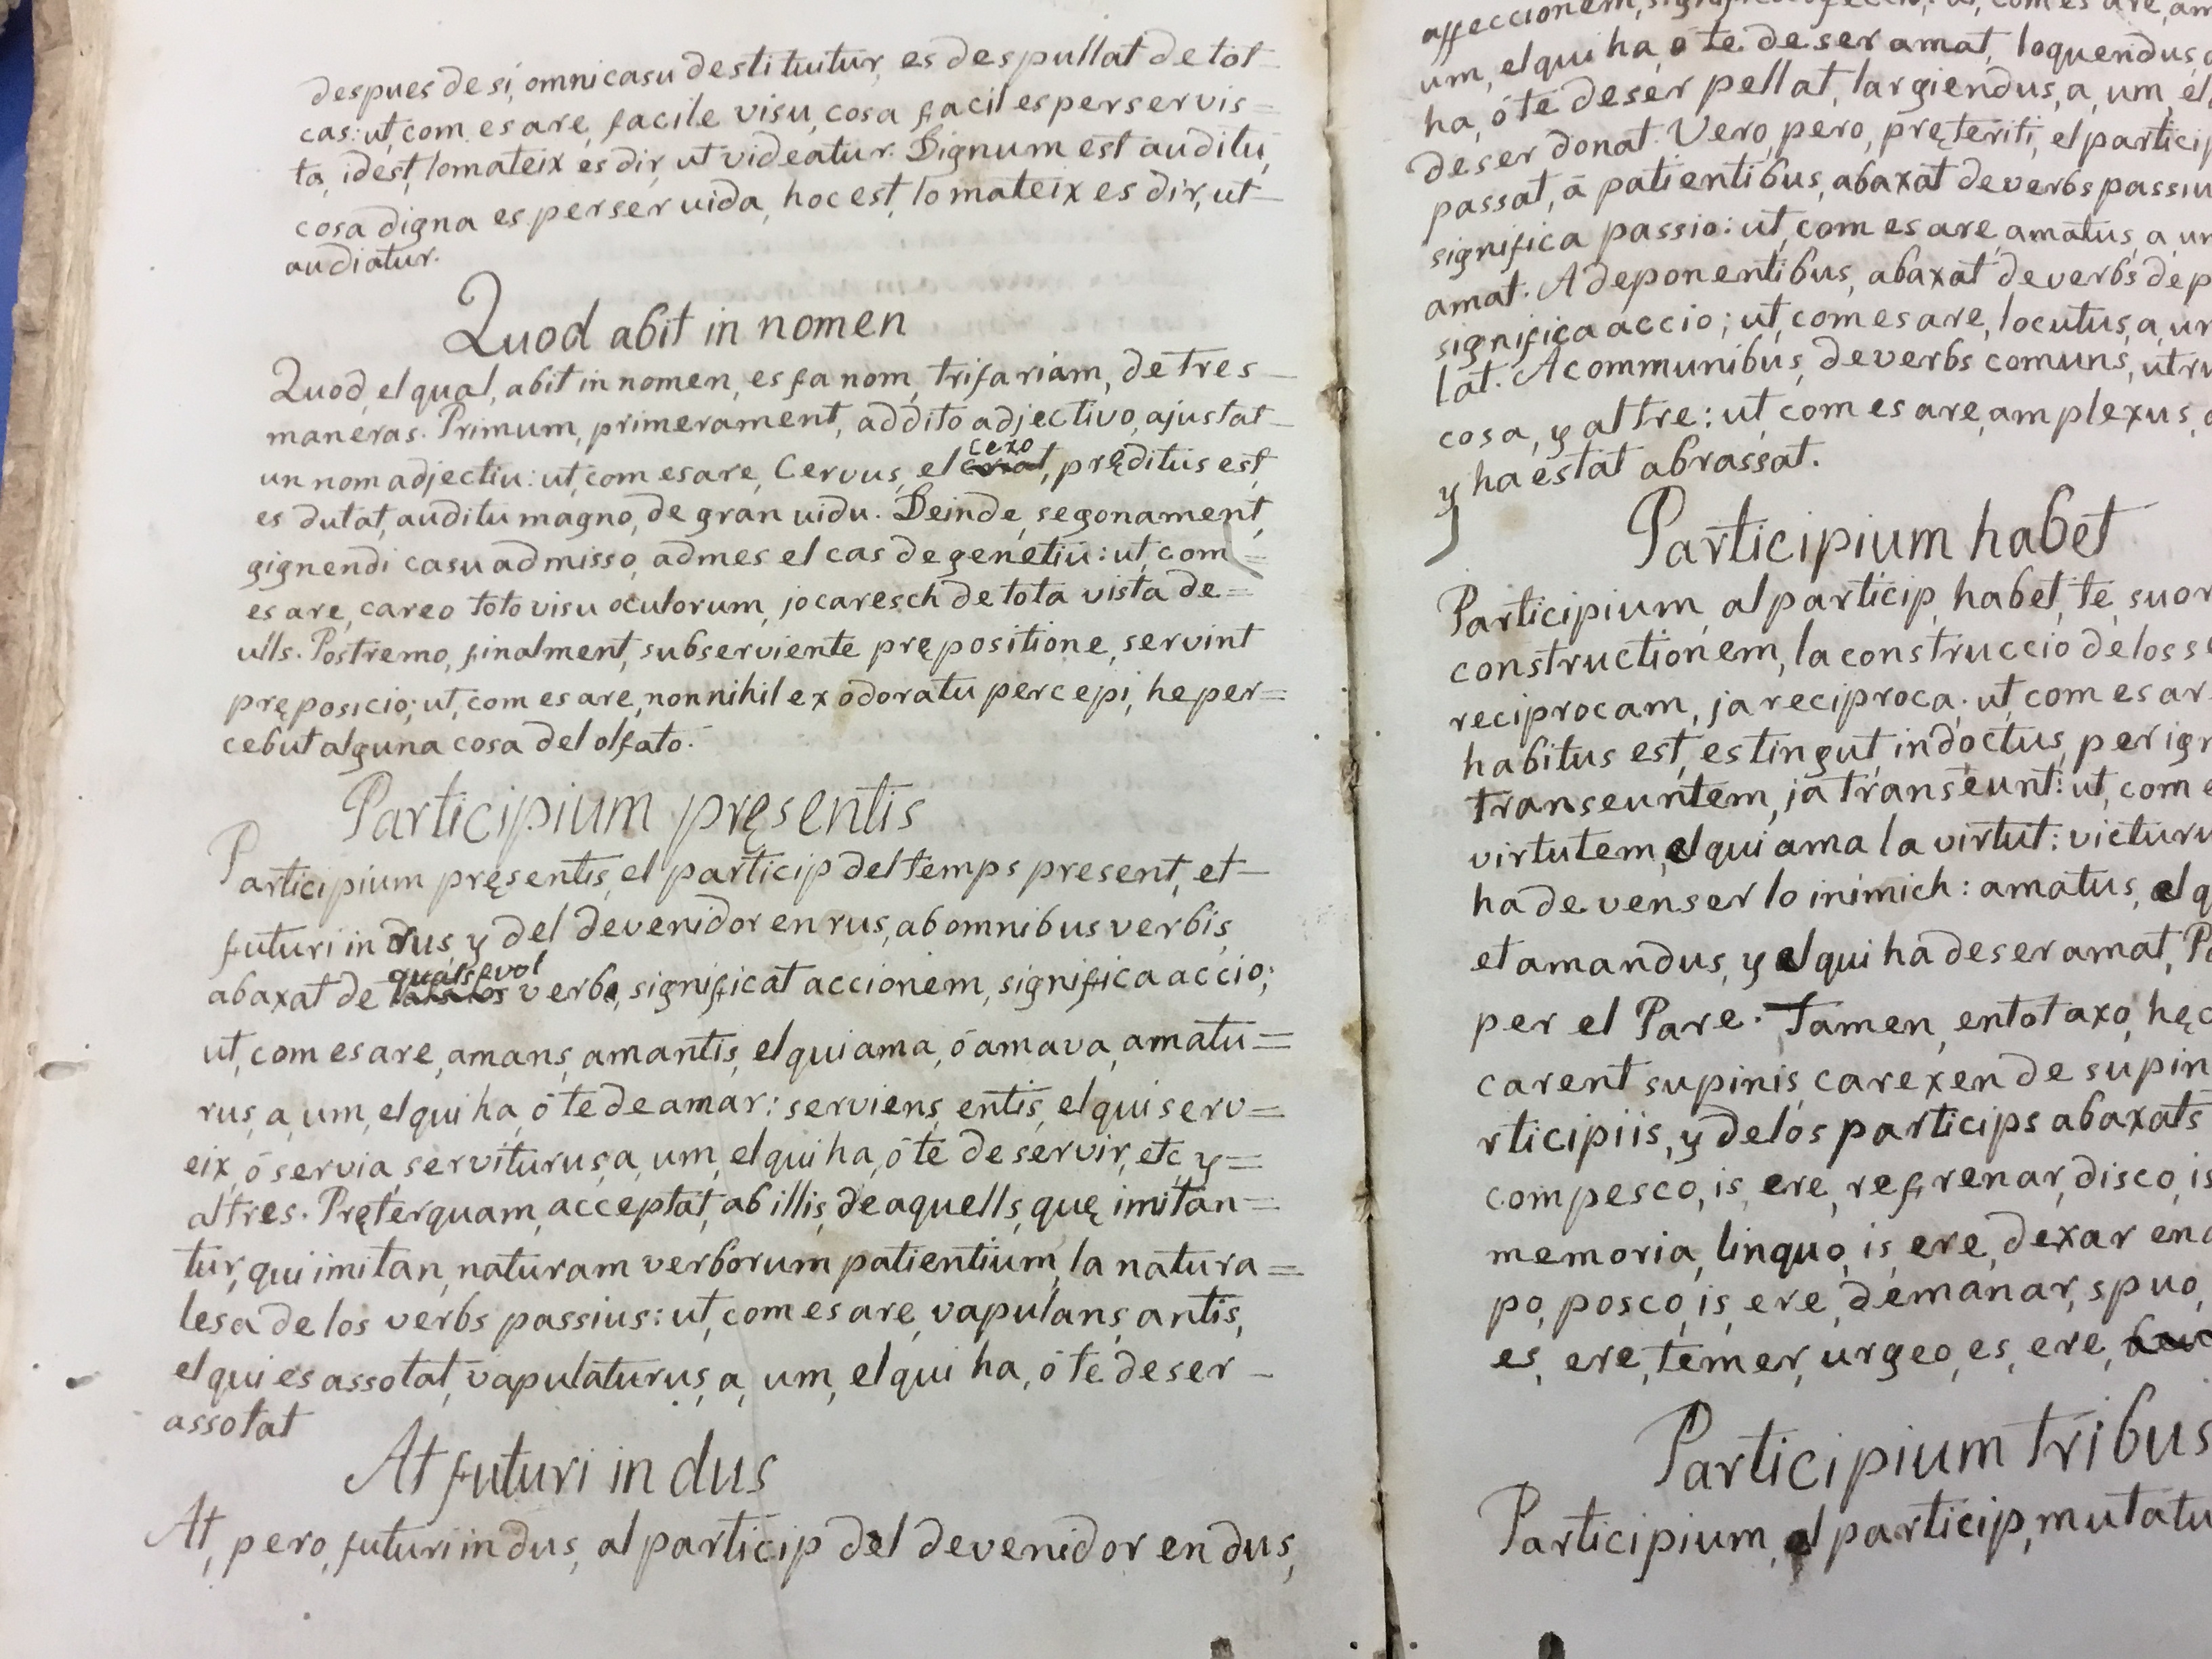 despues de si, omni casu destituitur, es despullat de tot
cas: ut, com es are, facile visu, cosa facil es per ser vis=
ta, id est, lo mateix es dir, ut videatur. Dignum est auditu,
cosa digna es per ser uida, hoc est, lo mateix es dir, ut
audiatur.
Quod abit in nomen
Quod, el qual, abit in nomen, es fa nom, trifariam, de tres
maneras. Primum, primerament, addito adjectivo, ajustat
un nom adjectiu: ut, com es are, Cervus, el cexo, pręditus est,
es dutat, auditu magno, de gran uidu. Deinde, segonament,
gignendi casu admisso, admes el cas de genetiu: ut, com=
es are, careo toto visu oculorum, jo caresch de tota vista de=
ulls. Postremo, finalment, subserviente prępositione, servint
pręposicio; ut, com es are, nonnihil ex odoratu percepi, he per=
cebut alguna cosa del olfato.
Participium pręsentis
Participium pręsentis, el particip del temps present, et
futuri in rus, y del devenidor en rus, ab omnibus verbis,
abaxat de qualsevol verbo, significat accionem, significa accio;
ut, com es are, amans, amantis, el qui ama, ó amava, amatu=
rus, a, um, el qui ha, ó te de amar: serviens, entis, el qui serv=
eix, ó servia, serviturus, a, um, el qui ha, ó te de servir, etc, y=
altres. Pręterquam, acceptat, ab illis, de aquells, quę imitan=
tur, qui imitan, naturam verborum patientium, la natura=
lesa de los verbs passius: ut, com es are, vapulans, antis,
el qui es assotat, vapulaturus, a, um, el qui ha, ó te de ser
assotat
At futuri in dus
At, pero, futuri in dus, al particip del devenidor en dus,
affeccionem,
um, el qui ha, ó te de ser amat, loquendus,
ha, ó te de ser pellat, largiendus, a, um, el
de ser donat. Vero, pero, pręteriti, el particip
passat, á patientibus, abaxat de verbs passiu
significa passio: ut, com es are, amatus, a, um
amat. A deponentibus, abaxat de verbs dep
significa accio; ut, com es are, locutus, a, um
lat. A communibus, de verbs comuns, utru
cosa, y altre: ut, com es are, amplexus,
y ha estat abrassat.
Participium habet
Participium, al particip, habet, te, suor
constructionem, la construccio de los se
reciprocam, ja reciproca: ut, com es ar
habitus est, es tingut, indoctus, per ign
transeuntem, ja transeunt: ut, com e
virtutem, el qui ama la virtut: victuru
ha de venser lo inimich: amatus, el q
et amandus, y el qui ha de ser amat, Pa
per el Pare. Tamen, en tot axo, hęc
carent supinis, carexen de supin
rticipiis, y de los particips abaxats
compesco, is, ere, refrenar, disco, is
memoria, linquo, is, ere, dexar en
po, posco, is, ere, demanar, spuo,
es, ere, temer, urgeo, es, ere,
Participium tribus
Participium, el particip, mutatu